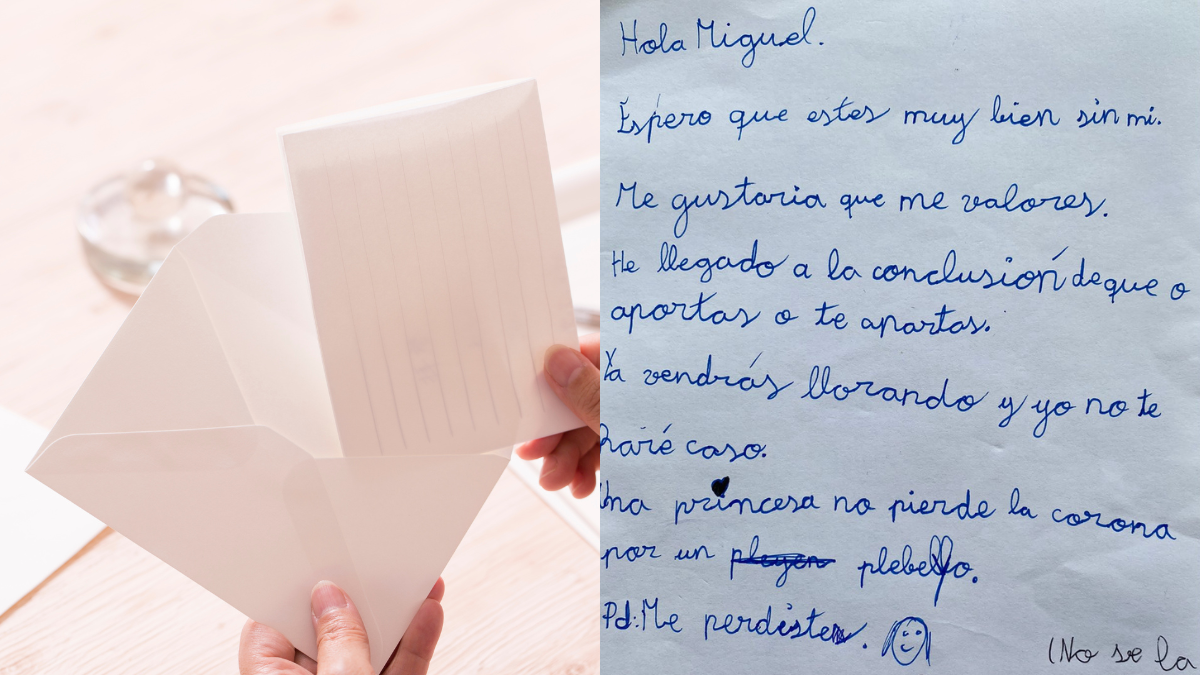 Hola Miguel.
Espero que estes muy bien sin mi.
Me gustaria que me valores.
He llegado a la conclusión de que o
aportas o te apartas.
Ya vendrás llorando y yo no te
haré caso.
Una princesa no pierde la corona
por un plebeyo.
Pd: Me perdiste.
(No se la